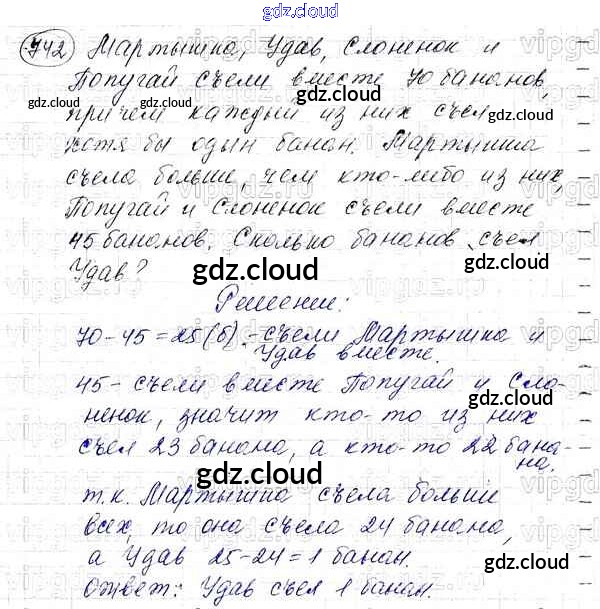 gdz.cloud
742 Мартышка, Удав, слоненок и
Попугай съели вместе 70 бананов,
gdz.cloud gdz.cloud
причем каждый из них съел
хотя бы один банан. Мартышка
съела больше, чем кто-либо из них,
Попугай и Слоненок съели вместе
45 бананов. Сколько бананов съел
gdz.cloud
Удав?
gdz.cloud
Решение:
70-45=25(б).-съели Мартышка и
Удав вместе.
gdz.cloud gdz.cloud
45- съели вместе Попугай и Сло-
gdz.cloud
ненок, значит кто-то из них
съел 23 банана, а кто-то 22 бана-
на.
gdz.cloud
т.к. Мартышка съела больше
всех, то она съела 24 банана,
gdz.cloud gdz.cloud
а Удав 25-24=1 банан.
Ответ: Удав съел 1 банан.